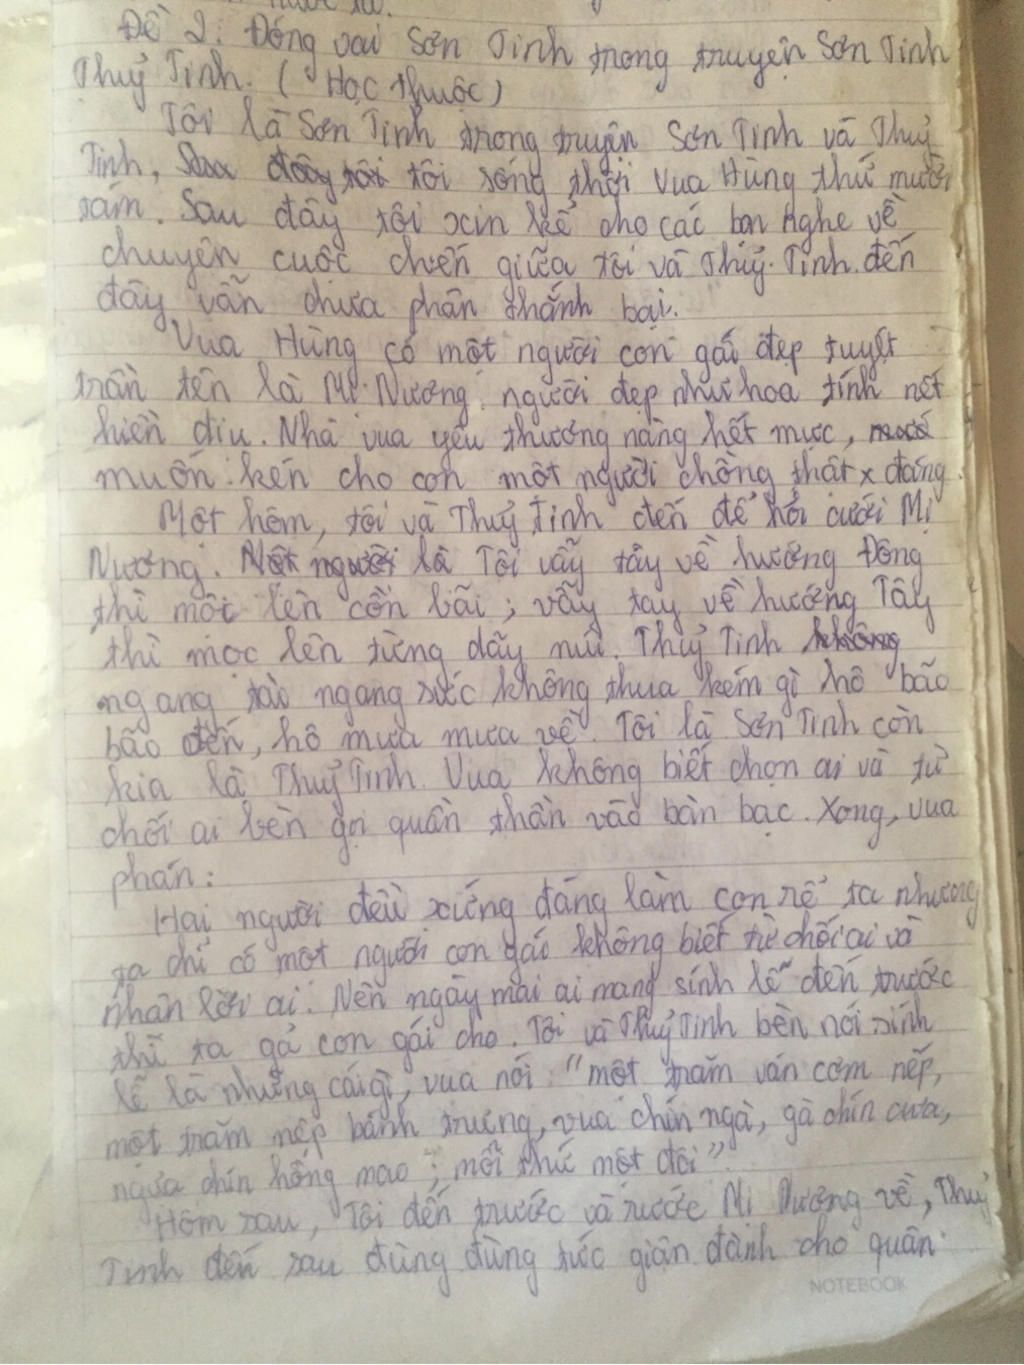 Đề 2: Đóng vai Sơn Tinh trong truyện Sơn Tinh
Thuỷ Tinh. ( Học thuộc)
Tôi là Sơn Tinh trong truyện Sơn Tinh và Thuỷ
Tinh, tôi sống thời Vua Hùng thứ mười
tám. Sau đây tôi xin kể cho các bạn nghe về
chuyện cuộc chiến giữa tôi và Thuỷ Tinh đến
đây vẫn chưa phân thắnh bại.
Vua Hùng có một người con gái đẹp tuyệt
trần tên là Mị Nương, người đẹp như hoa tính nết
hiền dịu. Nhà vua yêu thương nàng hết mực,
muốn kén cho con một người chồng thật x đáng.
Một hôm, tôi và Thuỷ Tinh đến để hỏi cưới Mị
Nương. Tôi vẫy tây về hướng Đông
thì môc lên cồn bãi; vẫy tay về hướng Tây
thì mọc lên từng dãy núi. Thuỷ Tinh
ngang tài ngang sức không thua kém gì hô bão
bão đến, hô mưa mưa về. Tôi là Sơn Tinh còn
kia là Thuỷ Tinh. Vua không biết chọn ai và từ
chối ai bèn gọi quần thần vào bàn bạc. Xong, vua
phán:
Hai người đều xứng đáng làm con rể ta nhưng
ta chỉ có một người con gái không biết từ chối ai và
nhận lời ai. Nên ngày mai ai mang sính lễ đến trước
thì ta gả con gái cho. Tôi và Thuỷ Tinh bèn nói sính
lễ là những cái gì, vua nói: "một trăm ván cơm nếp,
một trăm nệp bánh trưng, vua chín ngà, gà chín cưa,
ngựa chín hồng mao"; mỗi thứ một đôi".
Hôm sau, Tôi đến trước và rước Mị Nương về, Thuỷ
Tinh đến sau đùng đùng tức giận đành cho quân
NOTEBOOK